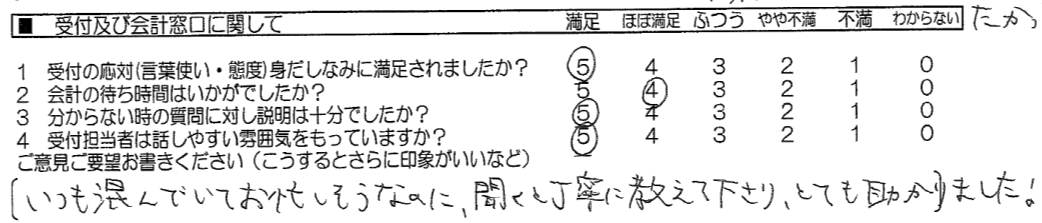 ■ 受付及び会計窓口に関して 満足 ほぼ満足 ふつう やや不満 不満 わからない たか
1 受付の応対(言葉使い・態度)身だしなみに満足されましたか? 5 4 3 2 1 0
2 会計の待ち時間はいかがでしたか? 5 4 3 2 1 0
3 分からない時の質問に対し説明は十分でしたか? 5 4 3 2 1 0
4 受付担当者は話しやすい雰囲気をもっていますか? 5 4 3 2 1 0
ご意見ご要望お書きください(こうするとさらに印象がいいなど)
(いつも混んでいてお忙しそうなのに、聞くと丁寧に教えて下さり、とても助かりました!